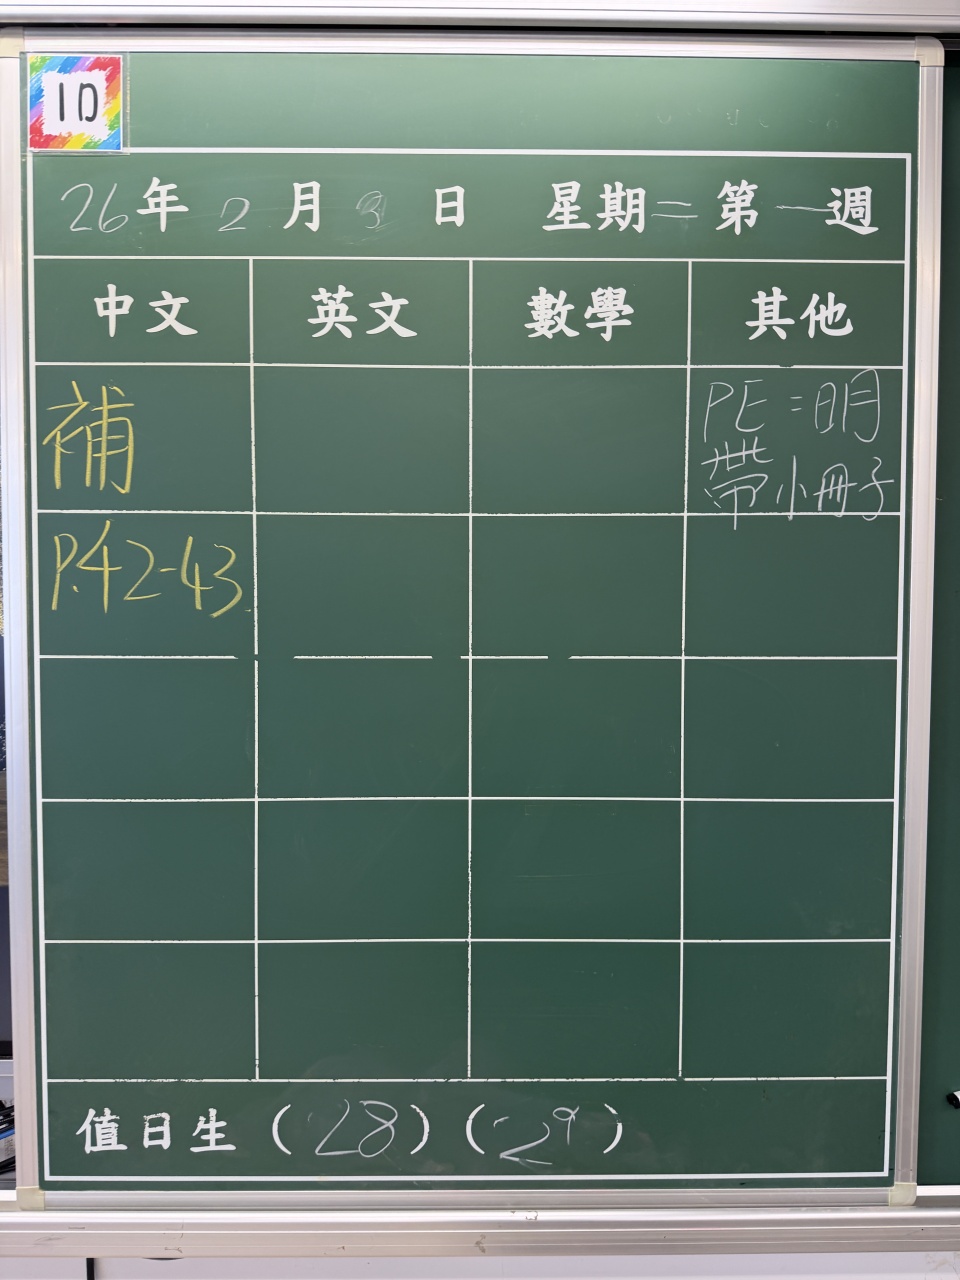 1D
26年2月3日 星期二第一週
中文 英文 數學 其他
補
PE:明
帶小冊子
P.42-43
值日生(28)(29)